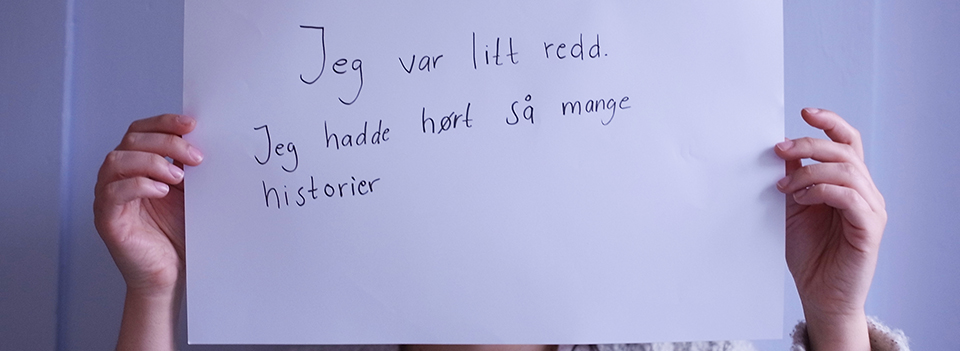 Jeg var litt redd.
Jeg hadde hørt så mange
historier